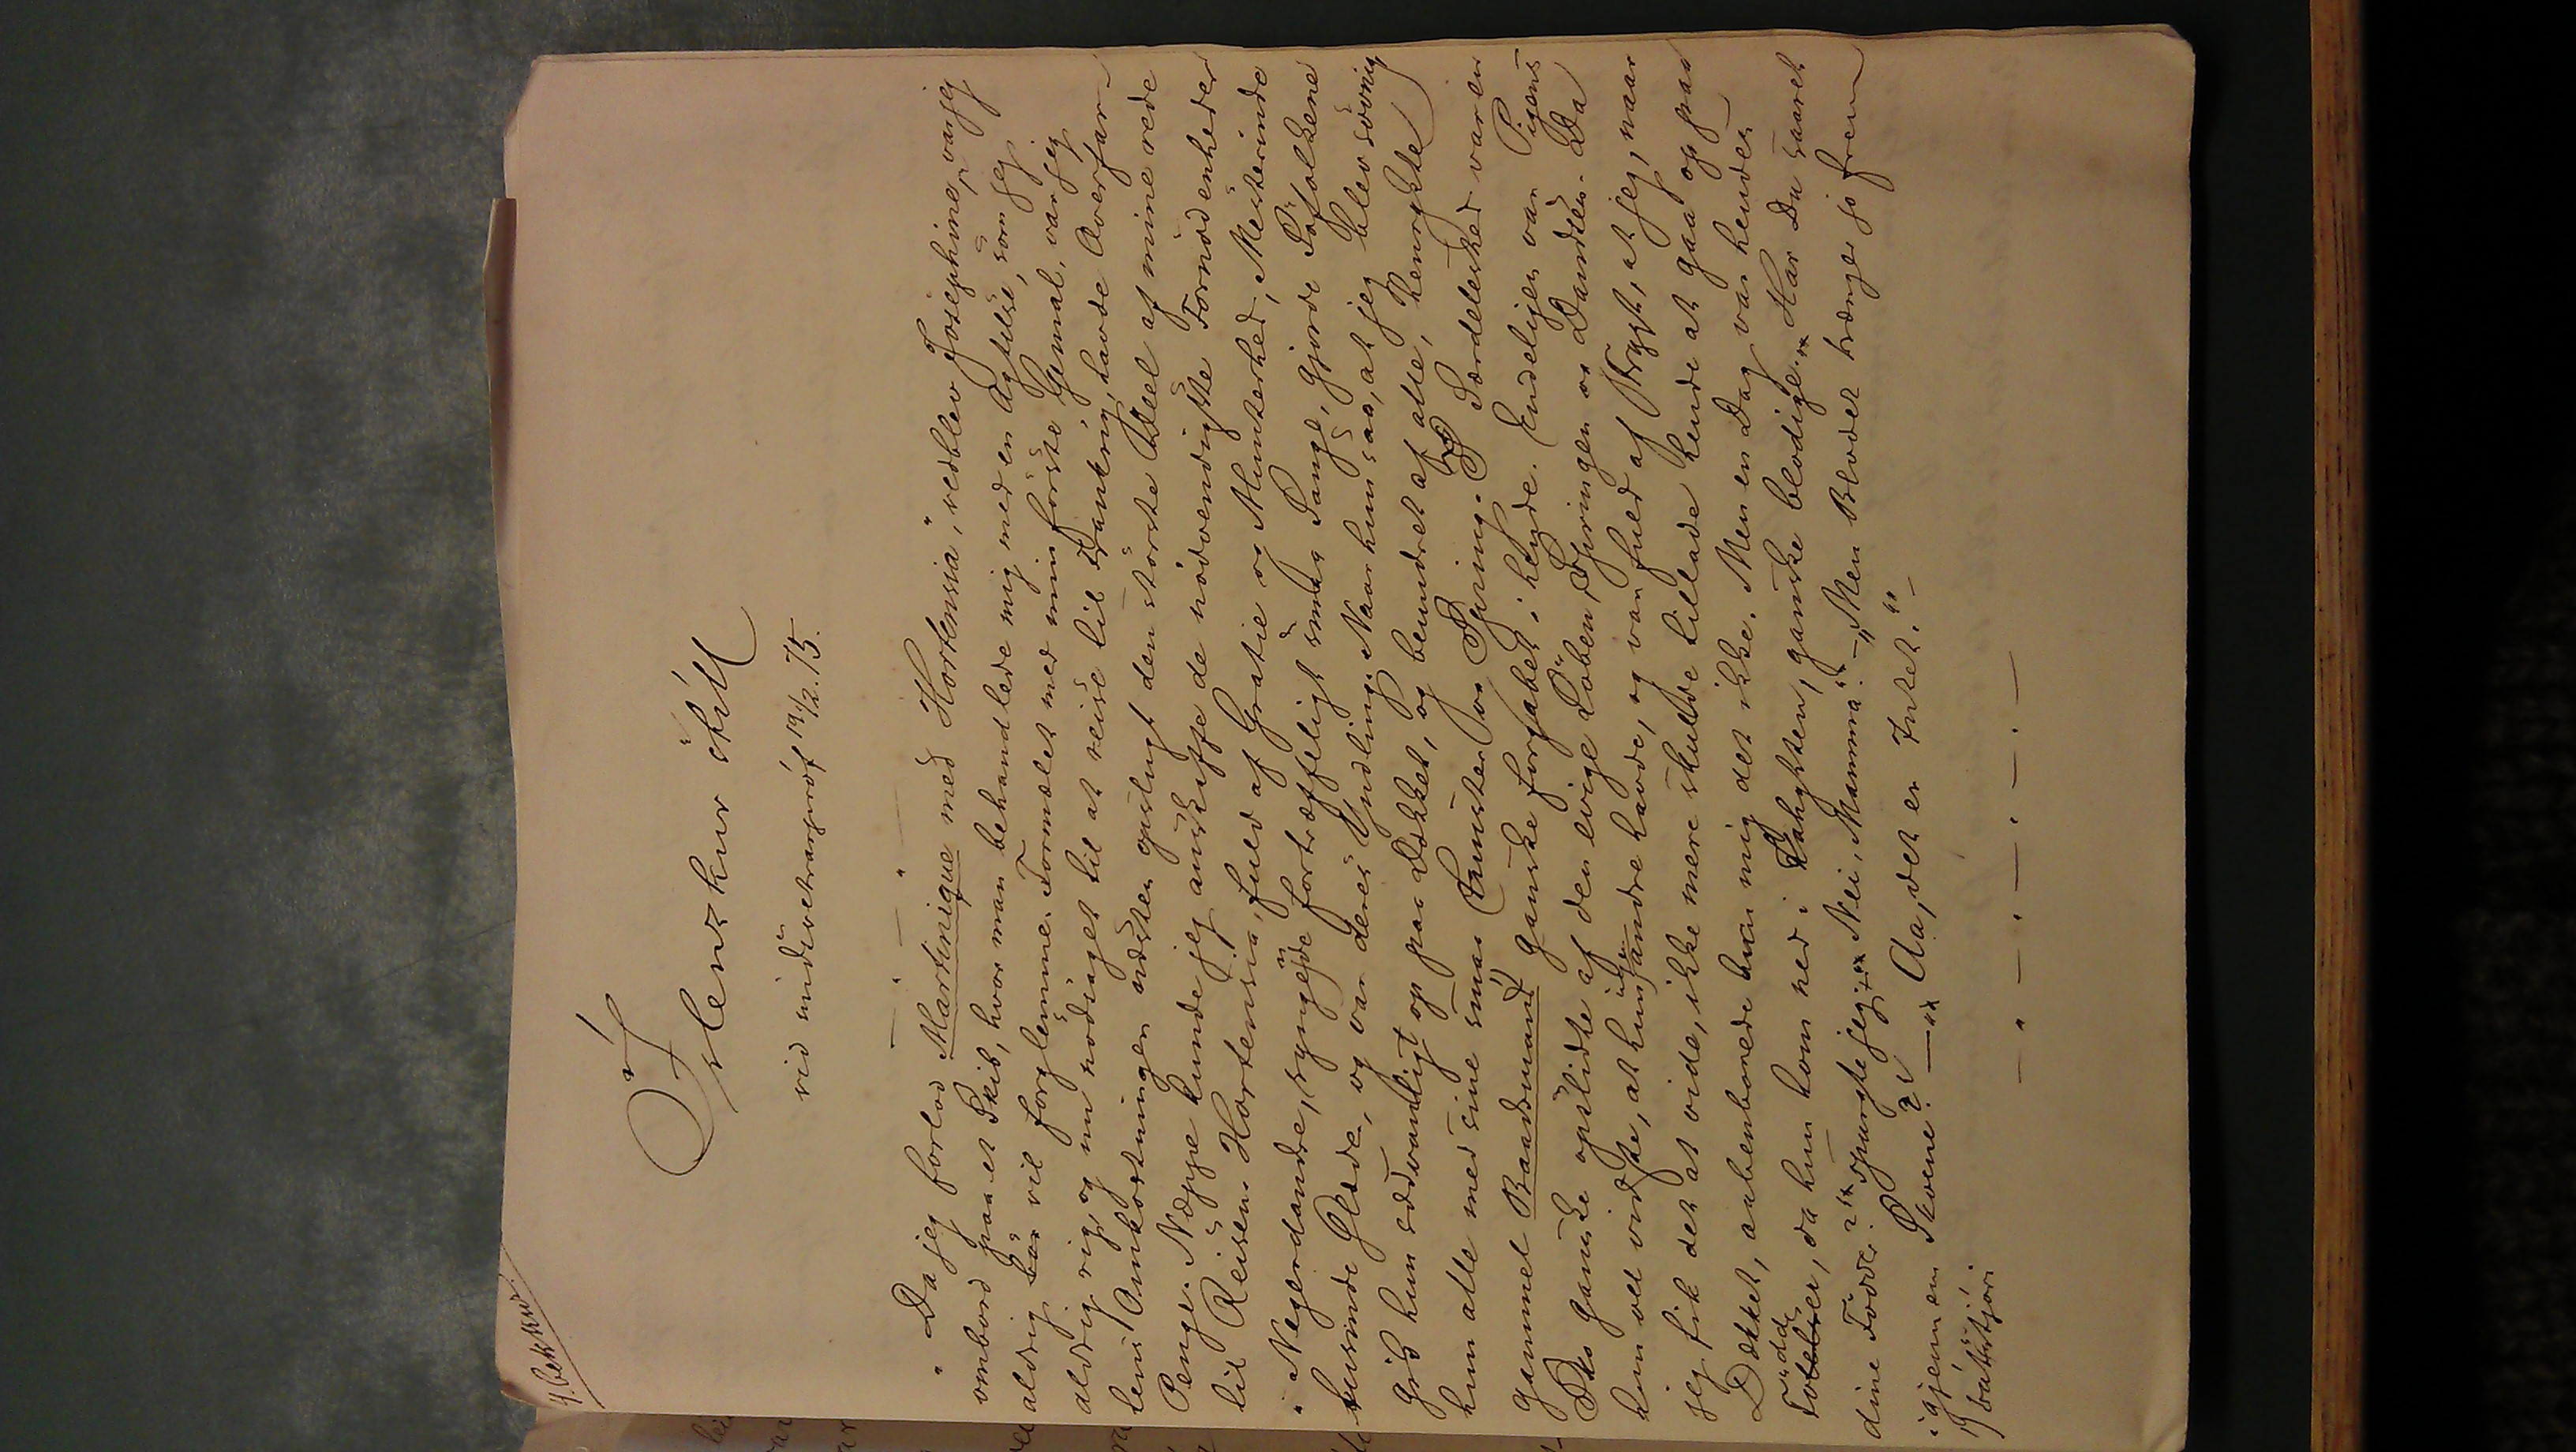 4. bekkur.
Íslenzkur stíll
við miðsvetrarpróf 19/2. 75.
"Da jeg forlod Martinique med Hortensia", vedblev Josephine, "var jeg
ombord paa et Skib, hvor man behandlede mig med en Agtelse, som jeg
aldrig vil forglemme. Formælet med min første Gemal, var jeg
aldrig rig, og nu nødsaget til at reise til Frankrig, havde Overfar-
tens Omkostninger næsten opslugt den største Deel af mine rede
Penge. Næppe kunde jeg anskaffe de nødvendigste Fornødenheder
til Reisen. Hortensia, fuld af Gratie og Munterhed, Mesterinde
i Negerdandse, syngede fortræffeligt smaa Sange, gjorde Søfolkene
tusinde Glæder, og var deres Yndling. Naar hun saa, at jeg blev søvnig
gik hun sædvanligt op paa Dækket, og beundret af alle, henrykte
hun alle med sine smaa Kunster og Spring. Særdeleshed var en
gammel Baadsmand ganske forgabet i hende. Endeligen var Pigens
Sko ganske opslidte af den evige Løben, Springen og Dandsen. Da
hun vel vidste, at hun ingen andre havde, og var fuld af Frygt, at jeg, naar
jeg fik det at vide, ikke mere skulde tillade hende at gaa op paa
Dækket, aabenbarede hun mig det ikke. Men en Dag var hendes
Fødder, da hun kom ned i Kahytten, ganske blodige. "Har Du saaret
dine Fødder?" spurgte jeg. "Nei, Mamma". - "Men Blodet trænger jo frem
igjennem Skoene?" — "Aa, det er Intet." -